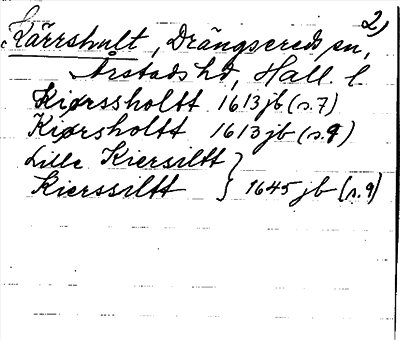 2)
Kärrshult, Drängsereds sn,
Årstads hd, Hall. l.
Kiørssholtt 1613 jb (s.7)
Kiørsholtt 1613 jb (s.9)
Lille Kiersiltt
Kierssiltt } 1645 jb (s.9)